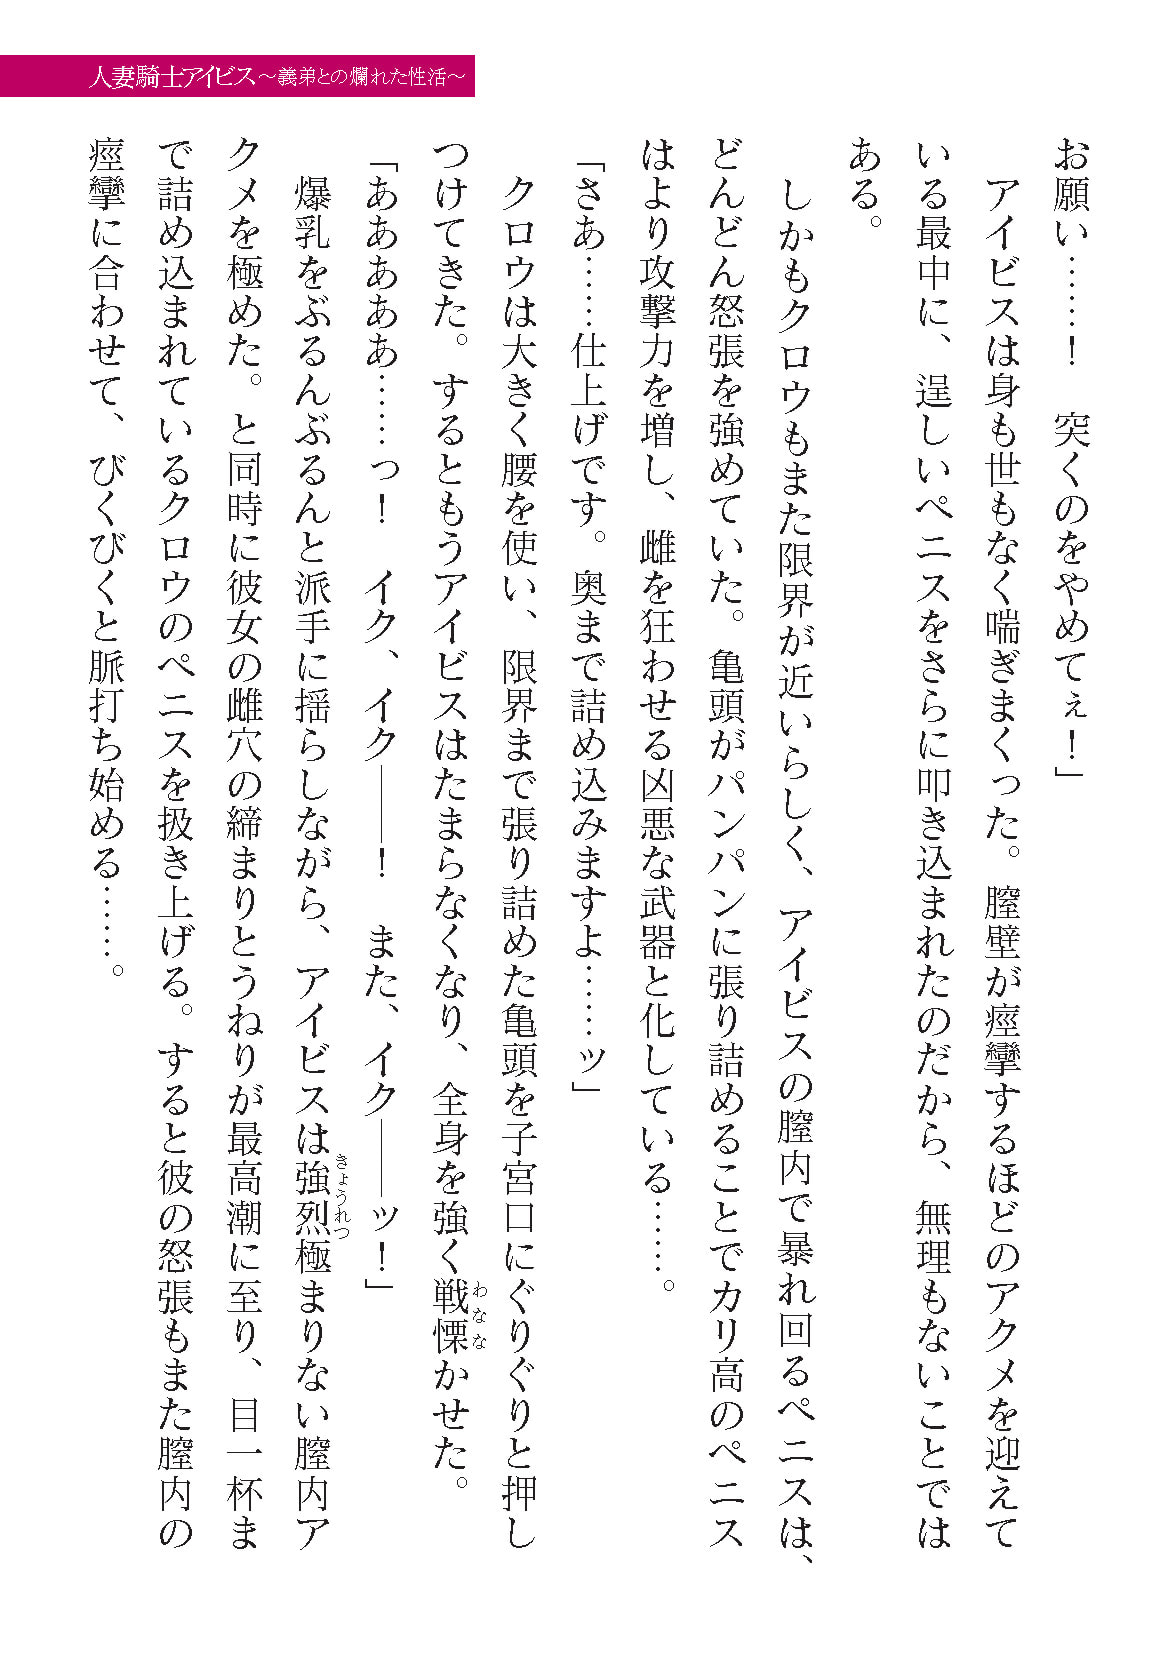 人妻騎士アイビス～義弟との爛れた性活～
お願い……！　突くのをやめてぇ！」
　アイビスは身も世もなく喘ぎまくった。膣壁が痙攣するほどのアクメを迎えて
いる最中に、逞しいペニスをさらに叩き込まれたのだから、無理もないことでは
ある。
　しかもクロウもまた限界が近いらしく、アイビスの膣内で暴れ回るペニスは、
どんどん怒張を強めていた。亀頭がパンパンに張り詰めることでカリ高のペニス
はより攻撃力を増し、雌を狂わせる凶悪な武器と化している……。
「さあ……仕上げです。奥まで詰め込みますよ……ッ」
　クロウは大きく腰を使い、限界まで張り詰めた亀頭を子宮口にぐりぐりと押し
つけてきた。するともうアイビスはたまらなくなり、全身を強く戦慄かせた。
わなな
「あああああ……っ！　イク、イク――！　また、イク――ッ！」
　爆乳をぶるんぶるんと派手に揺らしながら、アイビスは強烈極まりない膣内ア
きょうれつ
クメを極めた。と同時に彼女の雌穴の締まりとうねりが最高潮に至り、目一杯ま
で詰め込まれているクロウのペニスを扱き上げる。すると彼の怒張もまた膣内の
痙攣に合わせて、びくびくと脈打ち始める……。